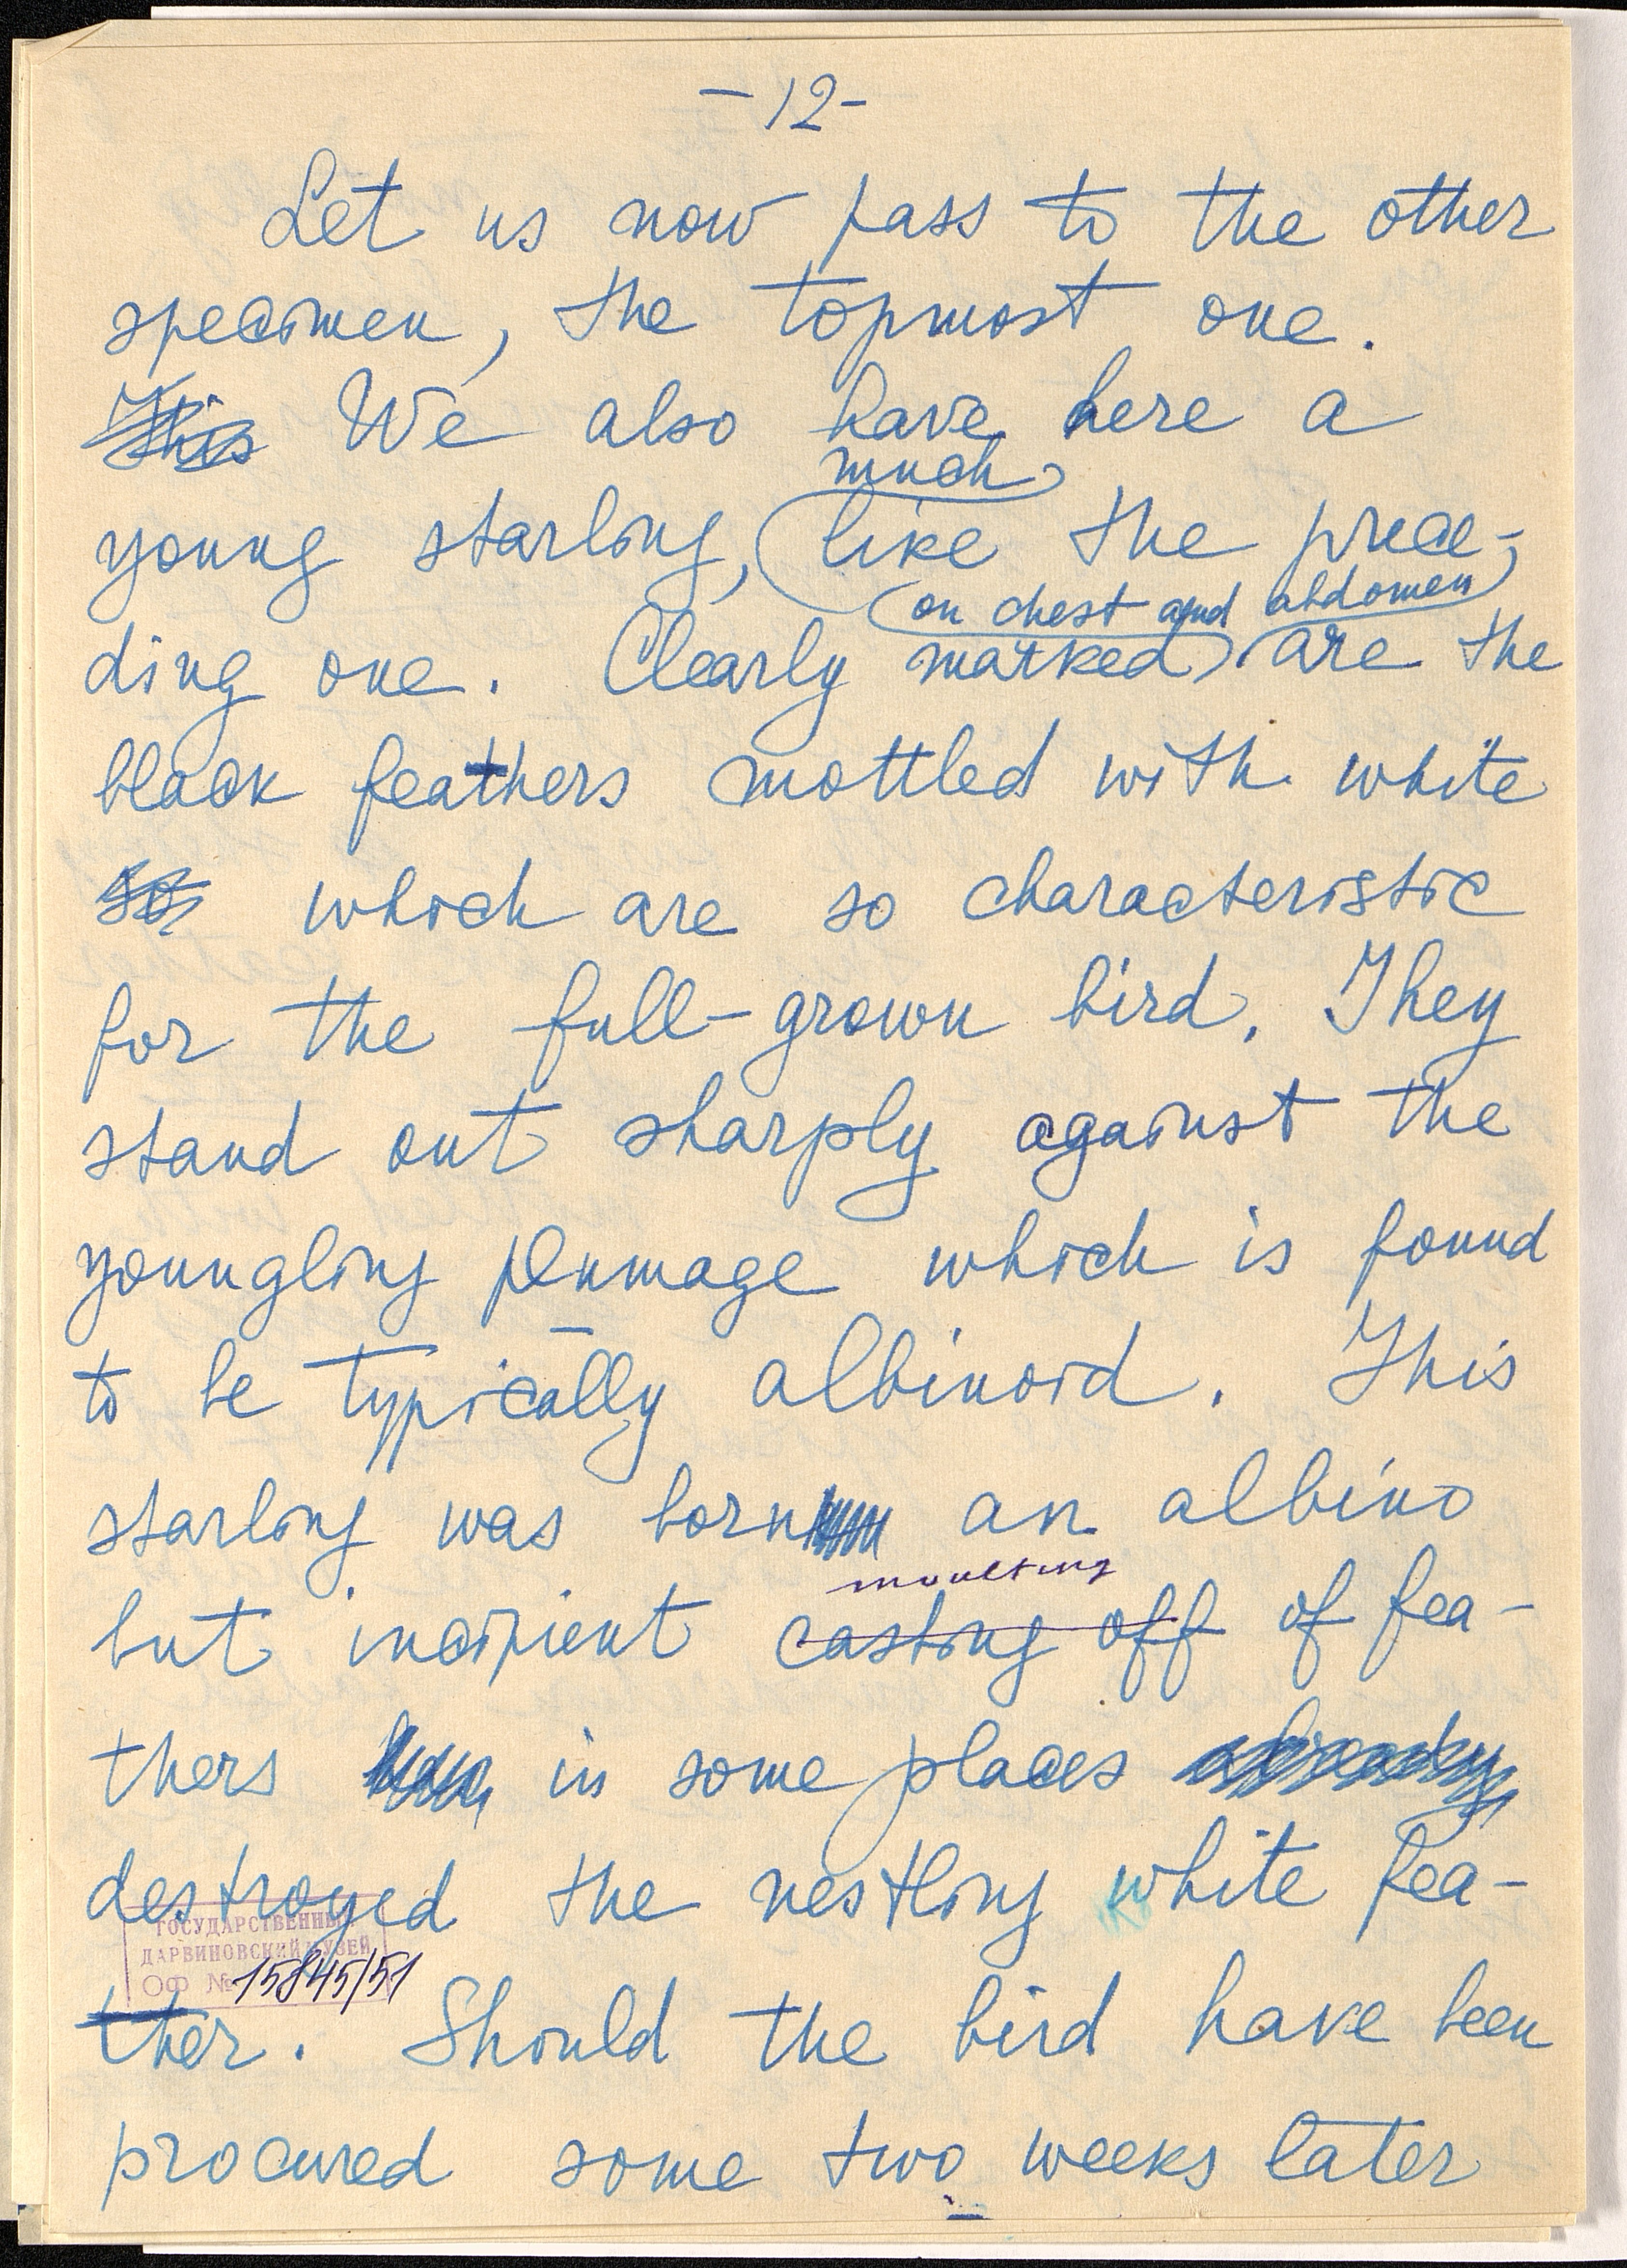 -12-
Let us now pass to the other
specimen, the topmost one.
This We also have here a
much
young starling, like the prece-
on chest and abdomen
ding one. Clearly marked are the
black feathers mottled with white
so which are so characteristic
for the full-grown bird. They
stand out sharply against the
youngling plumage which is found
to be typically albinoid. This
starling was born an albino
moulting
but incipient casting off of fea-
thers in some places already
destroyed the nestling white fea-
ГОСУДАРСТВЕННЫЙ
ДАРВИНОВСКИЙ МУЗЕЙ
ОФ № 15845/51
ther. Should the bird have been
procured some two weeks later